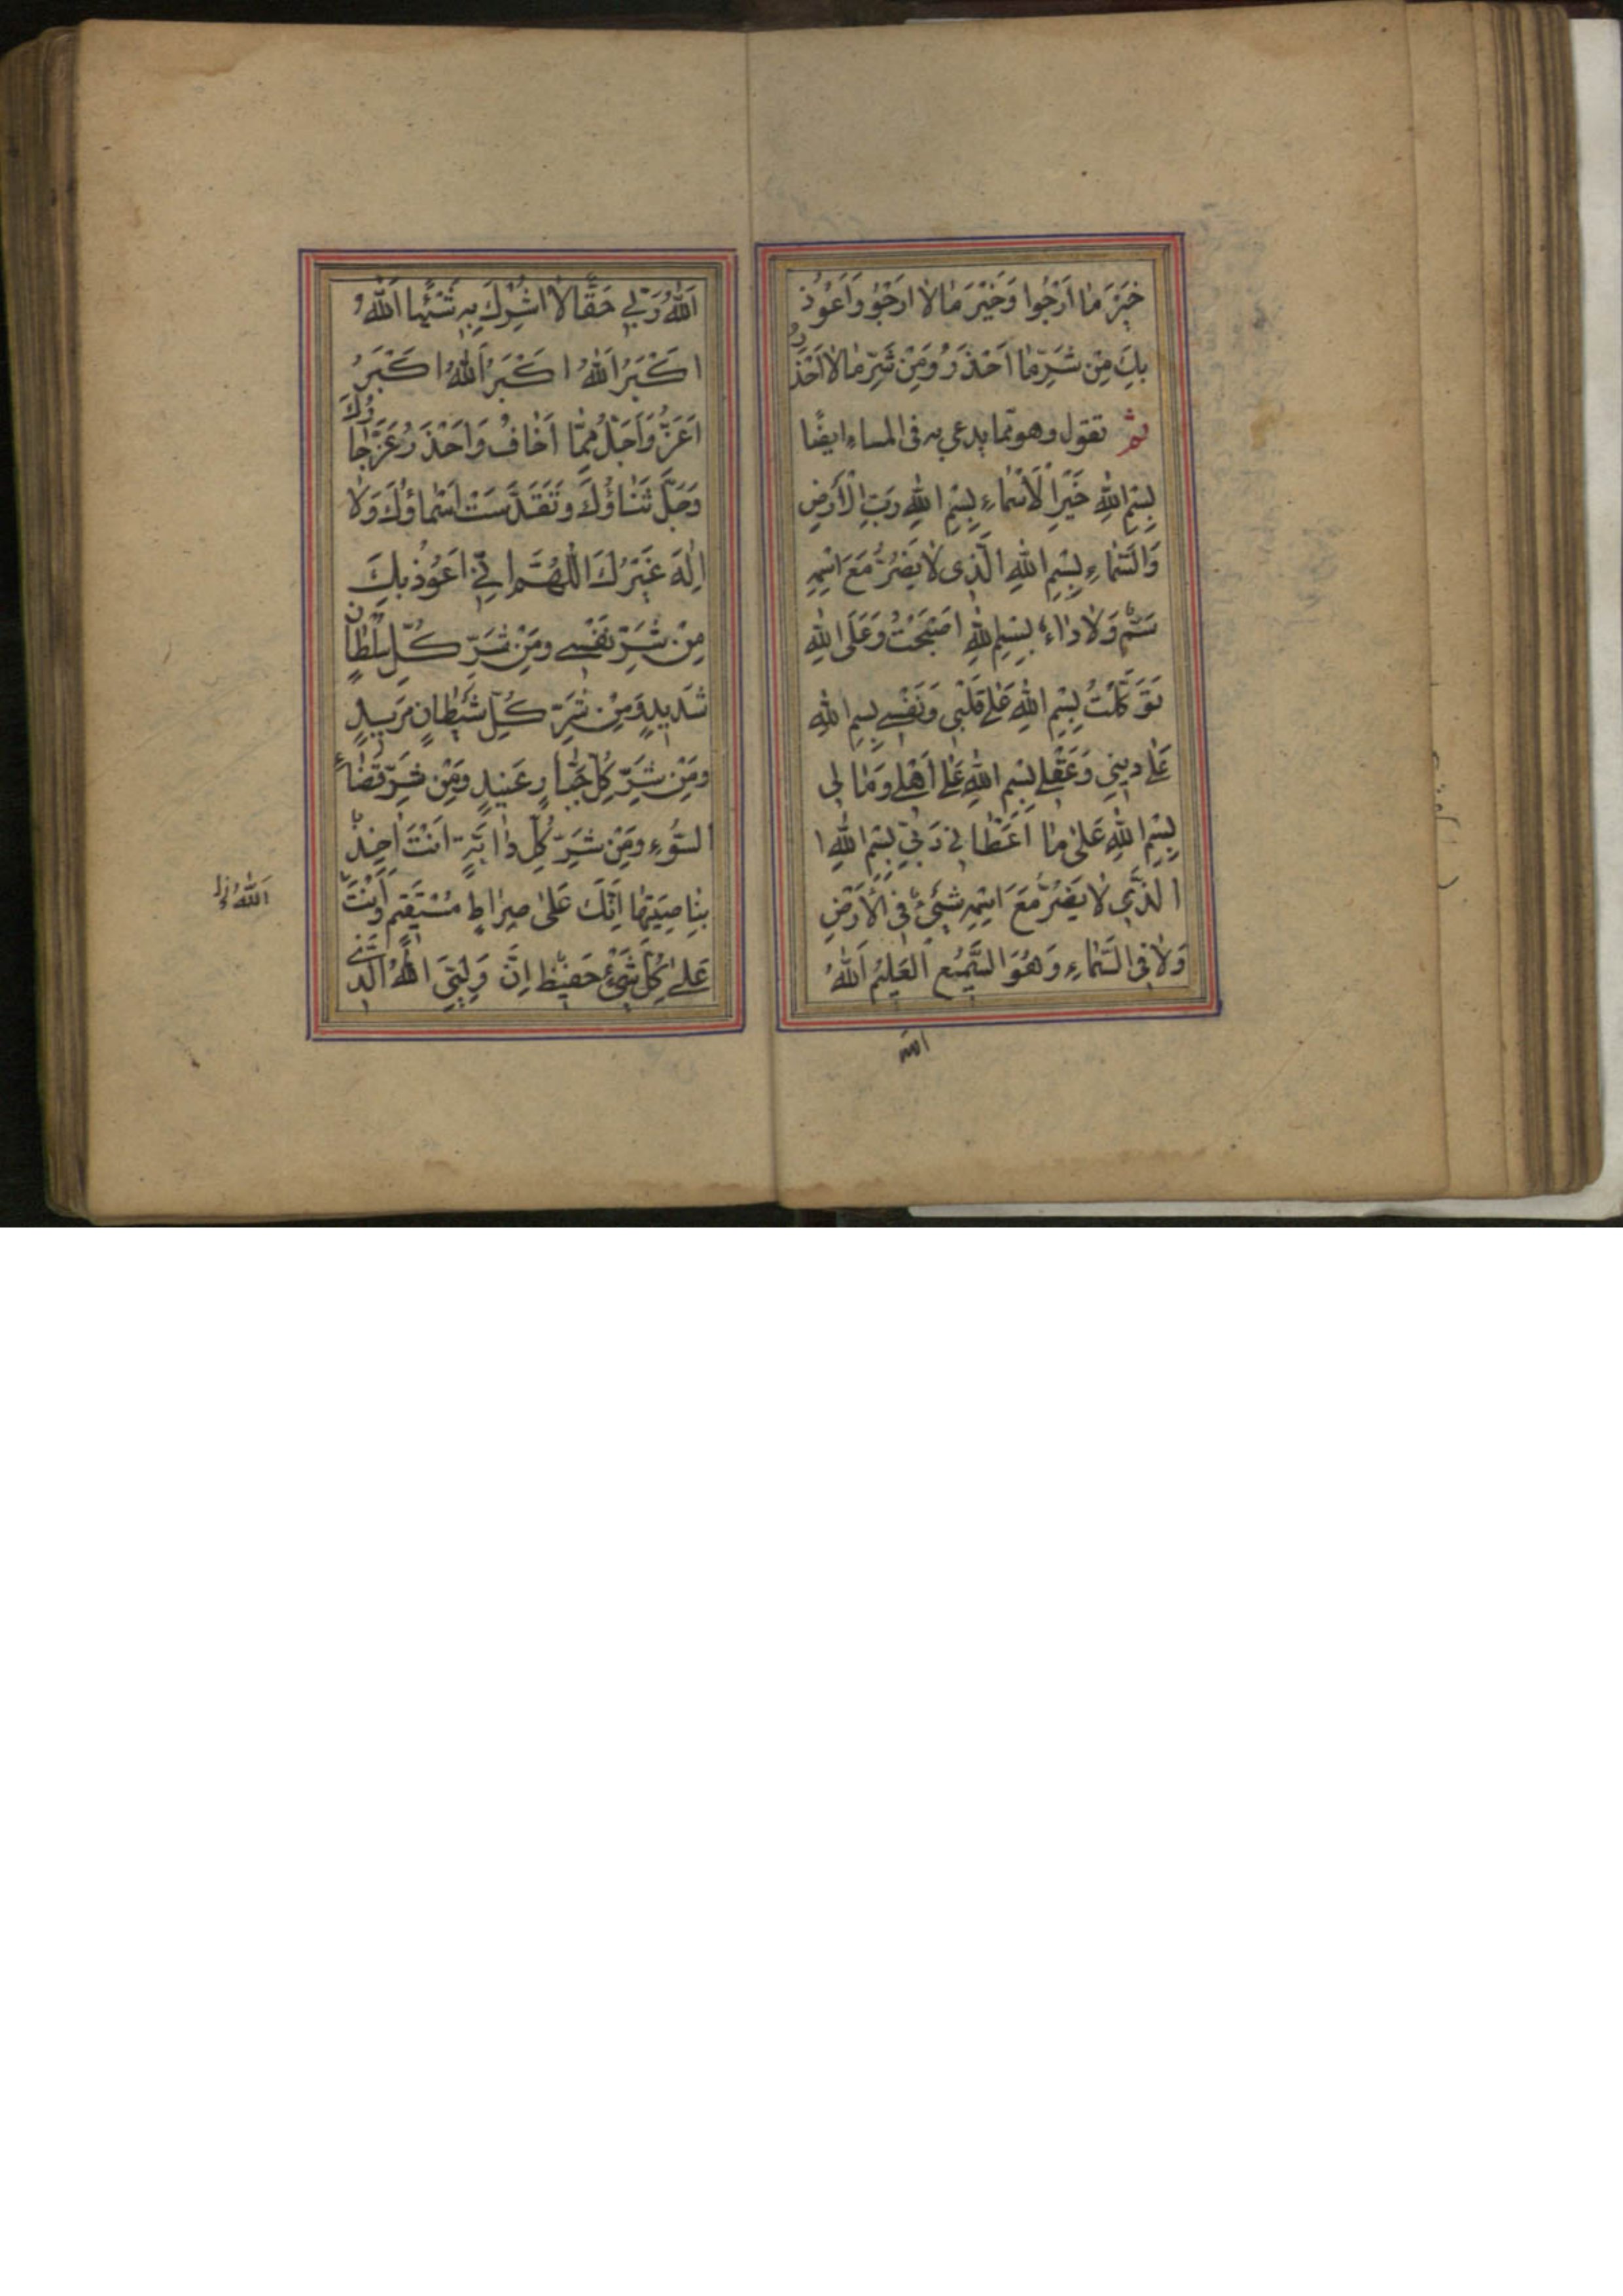 خَيْرَ مٰا اَرْجُوا وَخَيْرَ مٰا لاٰ اَرْجُوُ وَاَعُوْذُ
بِكَ مِنْ شَرِّ مٰا اَحْذَرُ وَمِنْ شَرِّ مٰا لاٰ اَحْذَرُ
ثم تقول وهو مما يدعى به فى المساء ايضًا
بِسْمِ اللّٰهِ خَيْرِ الْاَسْمٰاءِ بِسْمِ اللّٰهِ رَبِّ الْاَرْضِ
وَالسَّمٰاءِ بِسْمِ اللّٰهِ الَّذِى لاٰ يَضُرُّ مَعَ اسْمِهِ
سَمٌّ وَلاٰ دٰاءٌ بِسْمِ اللّٰهِ اَصْبَحْتُ وَعَلَى اللّٰهِ
تَوَكَّلْتُ بِسْمِ اللّٰهِ عَلٰى قَلْبِى وَنَفْسِى بِسْمِ اللّٰهِ
عَلٰى دِينِى وَعَقْلِى بِسْمِ اللّٰهِ عَلٰى اَهْلِى وَمٰالِى
بِسْمِ اللّٰهِ عَلٰى مٰا اَعْطٰانِى رَبِّى بِسْمِ اللّٰهِ
الَّذِى لاٰ يَضُرُّ مَعَ اسْمِهِ شَىْءٌ فِى الْاَرْضِ
وَلاٰ فِى السَّمٰاءِ وَهُوَ السَّمِيعُ الْعَلِيمُ اَللّٰهُ
الله
اَللّٰهُ رَبِّى حَقًّا لاٰ اُشْرِكُ بِهِ شَيْئًا اَللّٰهُ
اَكْبَرُ اَللّٰهُ اَكْبَرُ اَللّٰهُ اَكْبَرُ
اَعَزُّ وَاَجَلُّ مِمَّا اَخٰافُ وَاَحْذَرُ عَزَّ جٰارُكَ
وَجَلَّ ثَنٰاؤُكَ وَتَقَدَّسَتْ اَسْمٰاؤُكَ وَلاٰ
اِلٰهَ غَيْرُكَ اَللّٰهُمَّ اِنِّى اَعُوْذُ بِكَ
مِنْ شَرِّ نَفْسِى وَمِنْ شَرِّ كُلِّ سُلْطٰانٍ
شَدِيدٍ وَمِنْ شَرِّ كُلِّ شَيْطٰانٍ مَرِيدٍ
وَمِنْ شَرِّ كُلِّ جَبّٰارٍ عَنِيدٍ وَمِنْ شَرِّ قَضٰاءِ
السُّوءِ وَمِنْ شَرِّ كُلِّ دٰابَّةٍ اَنْتَ اٰخِذٌ
بِنٰاصِيَتِهٰا اِنَّكَ عَلٰى صِرٰاطٍ مُسْتَقِيمٍ وَاَنْتَ
عَلٰى كُلِّ شَىْءٍ حَفِيظٌ اِنَّ وَلِيِّىَ اللّٰهُ الَّذِى